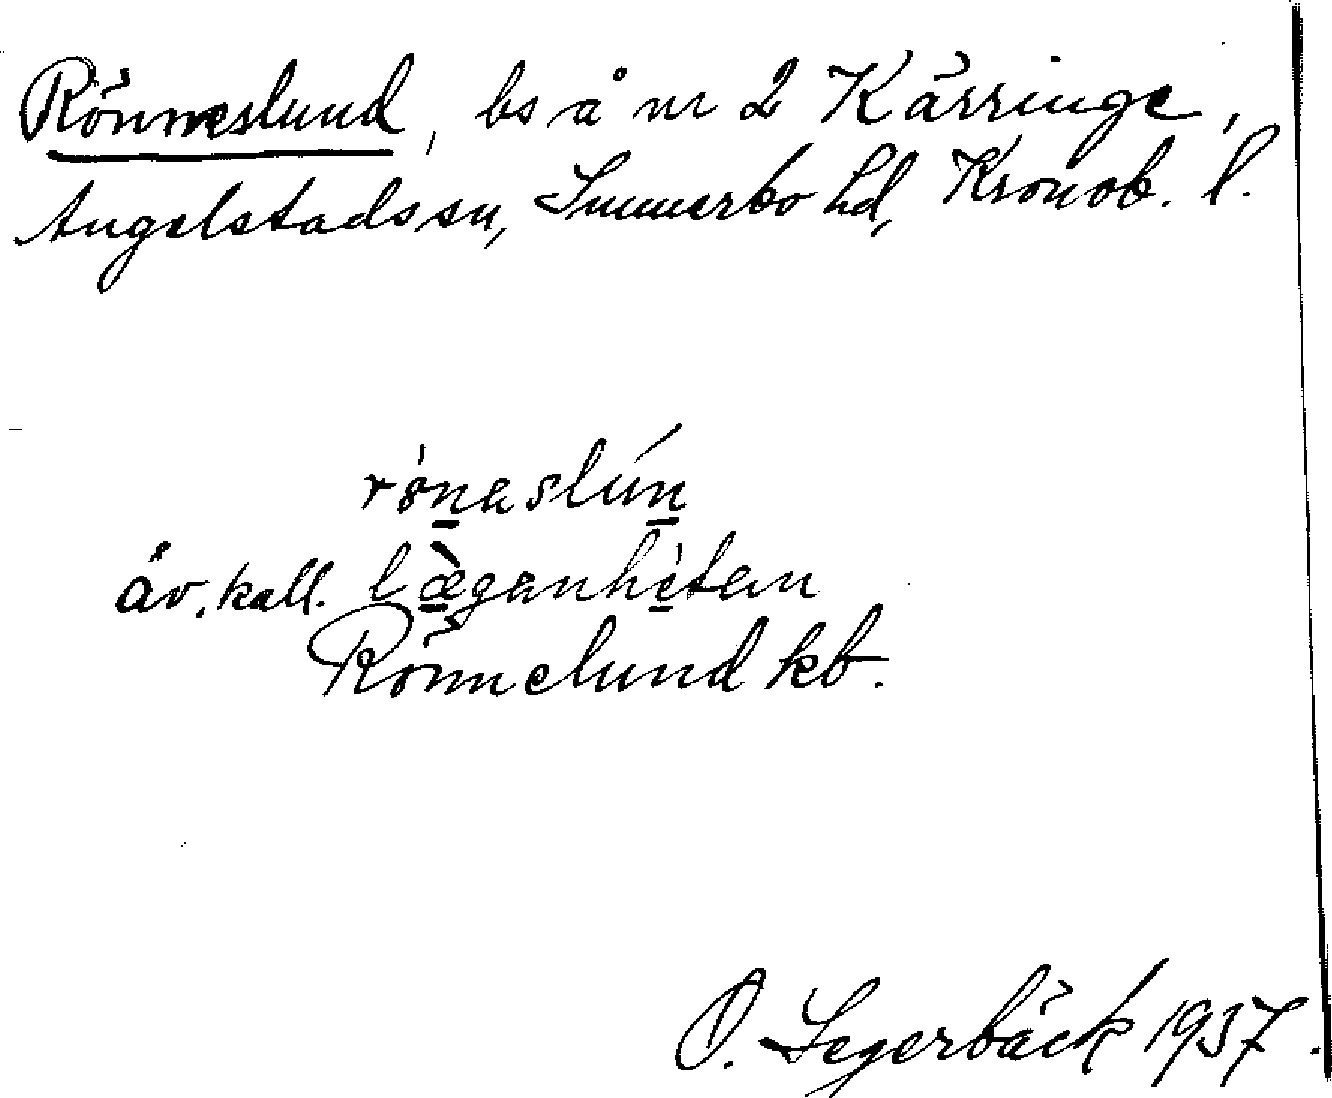 Rönneslund, bs å nr 2 Kärringe,
Angelstads sn, Sunnerbo hd, Kronob. l.
rönaslún
äv. kall. lægenhèten
Rönnelund kb.
O. Segerbäck 1937.